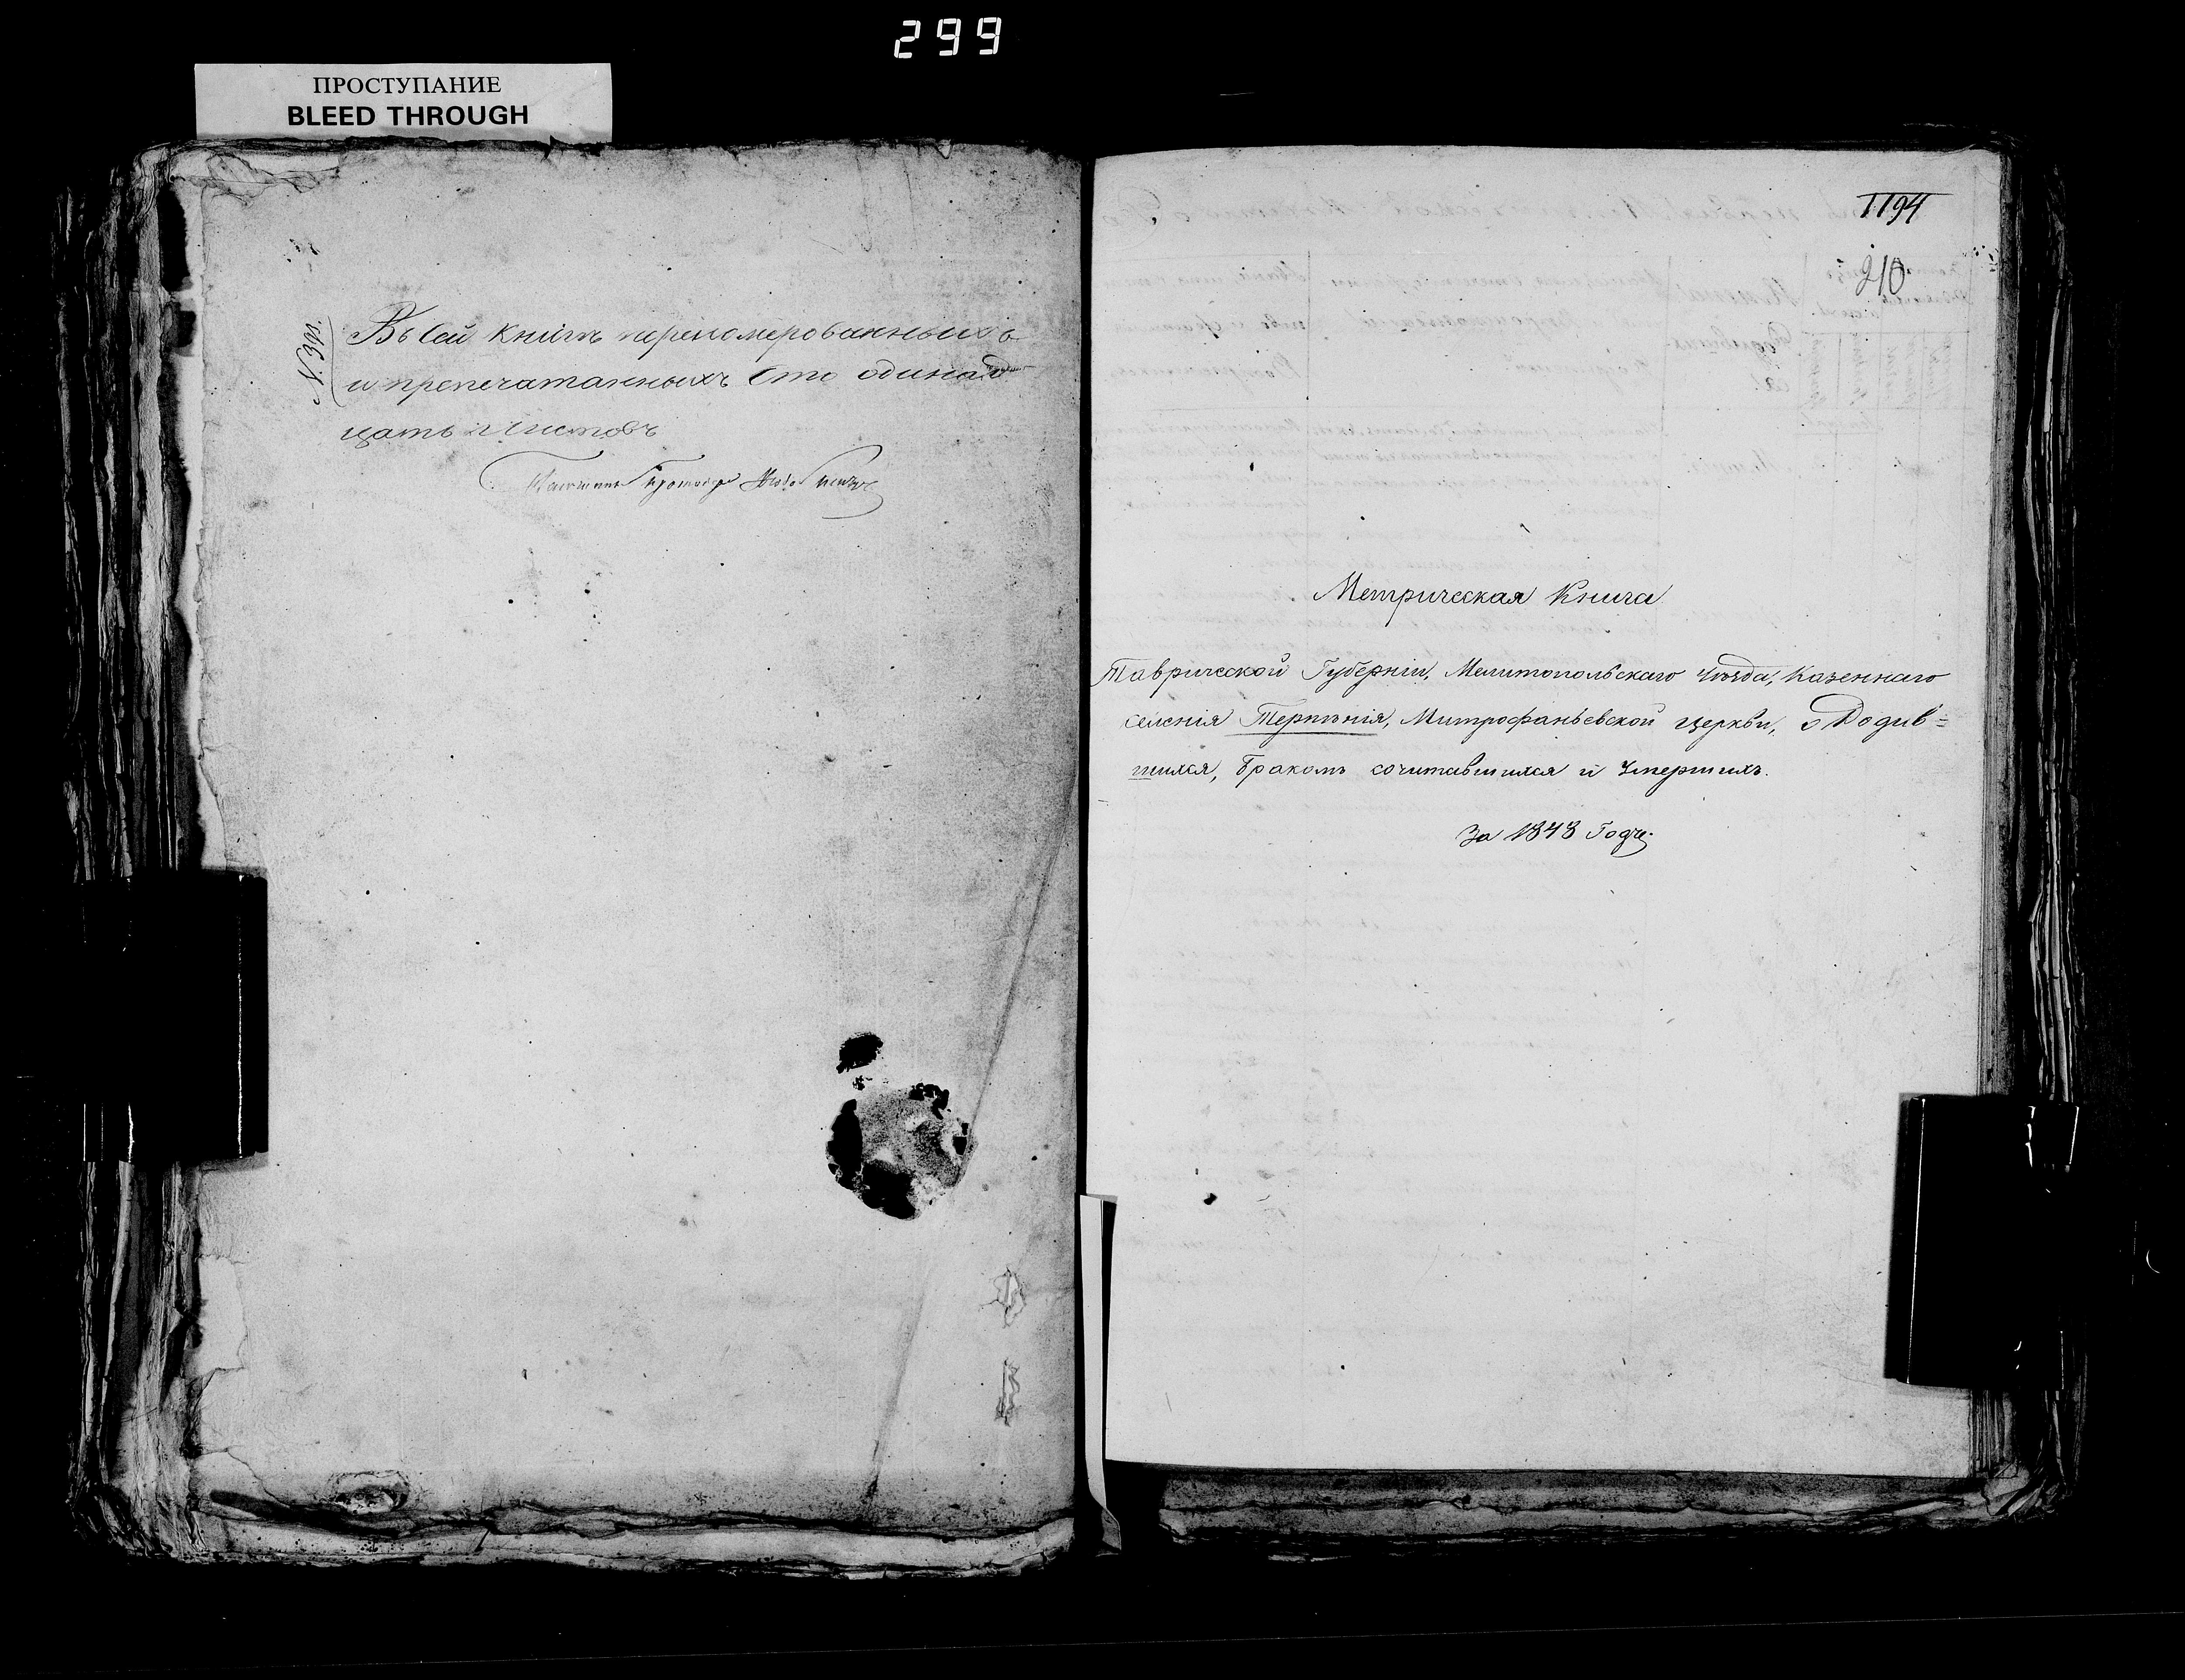 299
ПРОСТУПАНИЕ
BLEED THROUGH
Въ сей книгѣ перепомерованныхъ
и препечатанныхъ Сто одинад
цать листовъ
1194
210
Метрическая Книга
Таврической Губерніи, Мелитопольскаго Уѣзда, Казеннаго
селенія Терпѣнія, Митрофаньевской Церкви, о Родив=
шихся, Бракомъ сочитавшихся и Умершихъ.
За 1843 Годъ.